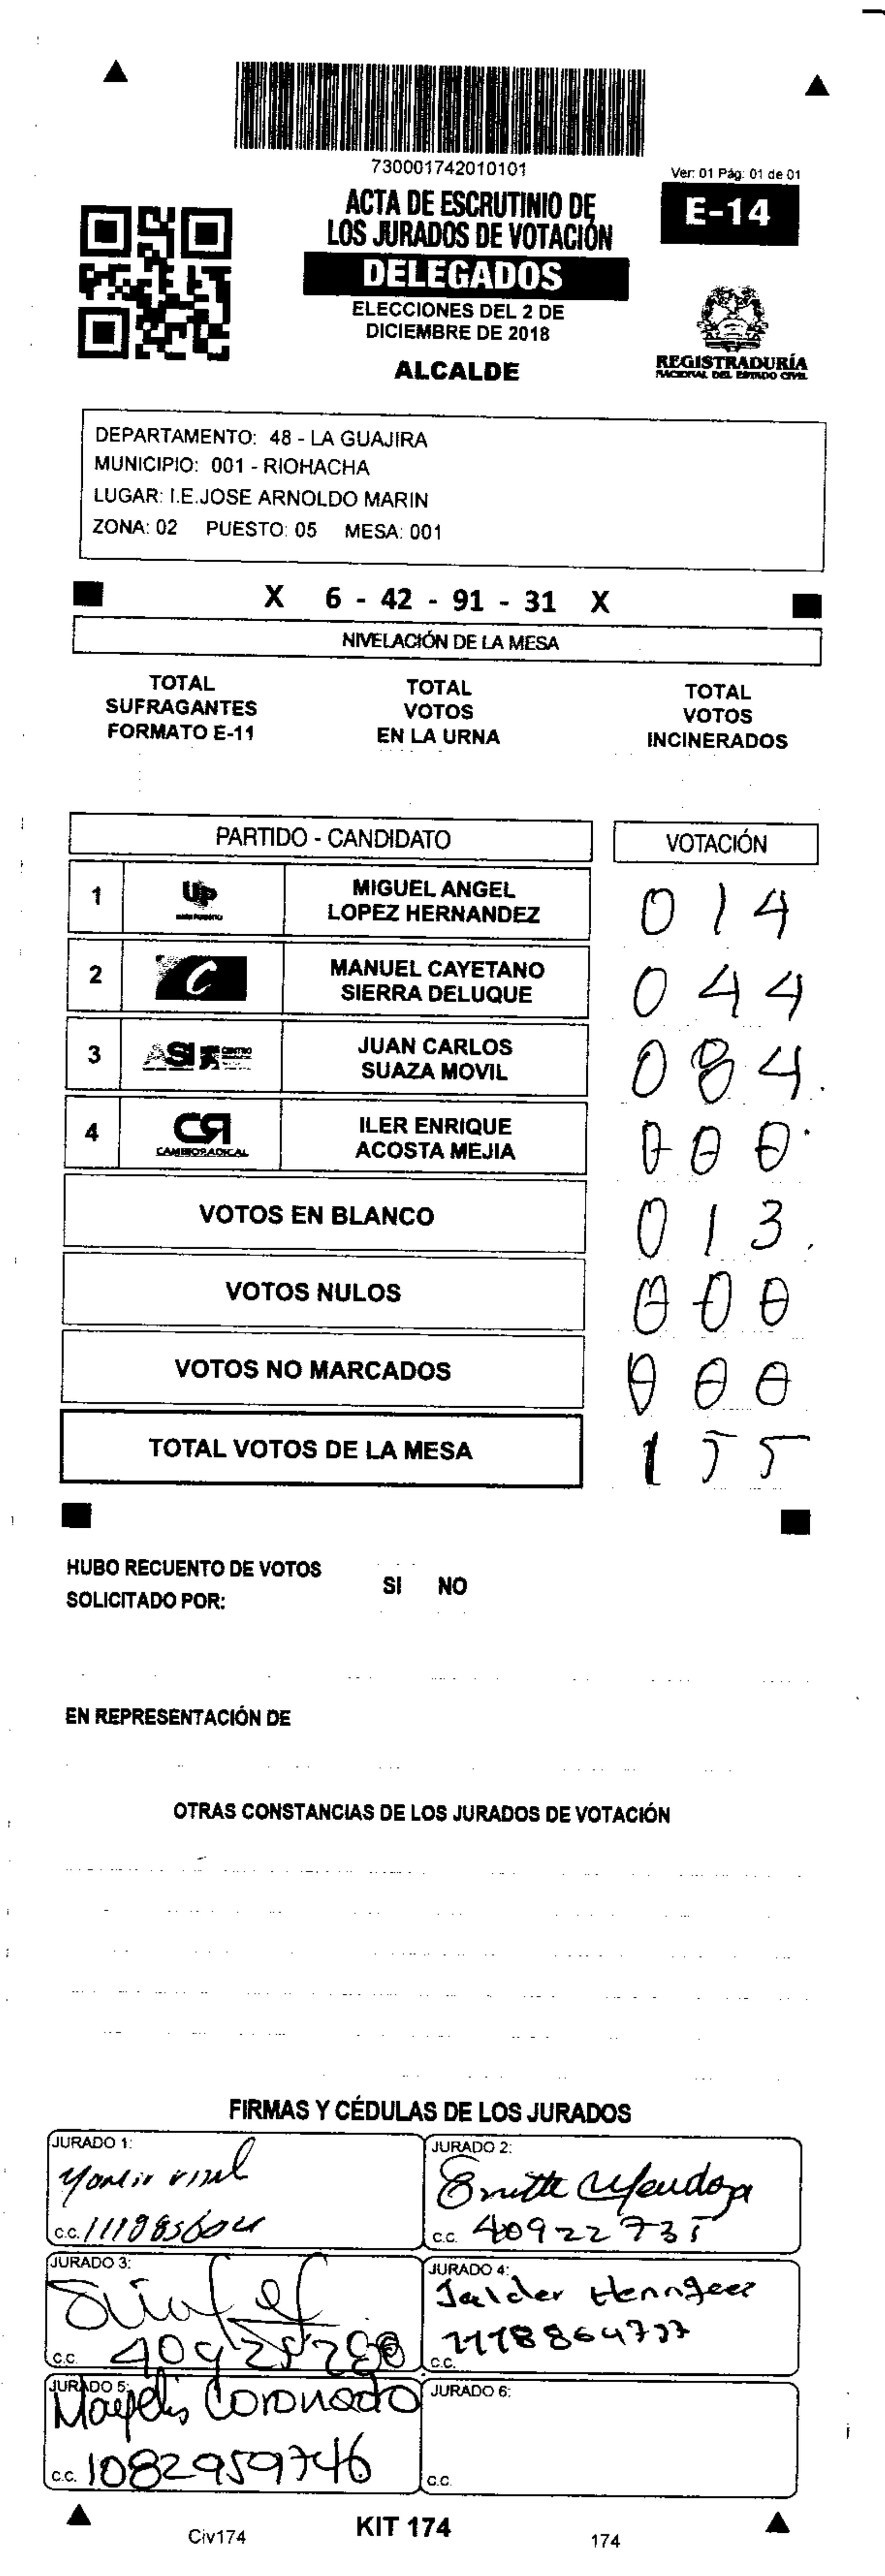 730001742010101
Ver: 01 Pág: 01 de 01
ACTA DE ESCRUTINIO DE
LOS JURADOS DE VOTACIÓN
E-14
DELEGADOS
ELECCIONES DEL 2 DE
DICIEMBRE DE 2018
ALCALDE
REGISTRADURÍA
NACIONAL DEL ESTADO CIVIL
DEPARTAMENTO: 48 - LA GUAJIRA
MUNICIPIO: 001 - RIOHACHA
LUGAR: I.E.JOSE ARNOLDO MARIN
ZONA: 02 PUESTO: 05 MESA: 001
X 6 - 42 - 91 - 31 X
NIVELACIÓN DE LA MESA
TOTAL SUFRAGANTES FORMATO E-11
TOTAL VOTOS EN LA URNA
TOTAL VOTOS INCINERADOS
PARTIDO - CANDIDATO VOTACIÓN
1 UP MIGUEL ANGEL LOPEZ HERNANDEZ 014
2 C MANUEL CAYETANO SIERRA DELUQUE 044
3 ASI CENTRO JUAN CARLOS SUAZA MOVIL 084
4 CR CAMBIO RADICAL ILER ENRIQUE ACOSTA MEJIA 000
VOTOS EN BLANCO 013
VOTOS NULOS 000
VOTOS NO MARCADOS 000
TOTAL VOTOS DE LA MESA 155
HUBO RECUENTO DE VOTOS SI NO
SOLICITADO POR:
EN REPRESENTACIÓN DE
OTRAS CONSTANCIAS DE LOS JURADOS DE VOTACIÓN
FIRMAS Y CÉDULAS DE LOS JURADOS
JURADO 1:
c.c.
JURADO 2:
Mendoza
c.c. 40922735
JURADO 3:
c.c.
JURADO 4:
Jalder
1118864777
c.c.
JURADO 5:
Mayelis Coronado
c.c. 1082959746
JURADO 6:
c.c.
Civ174
KIT 174
174